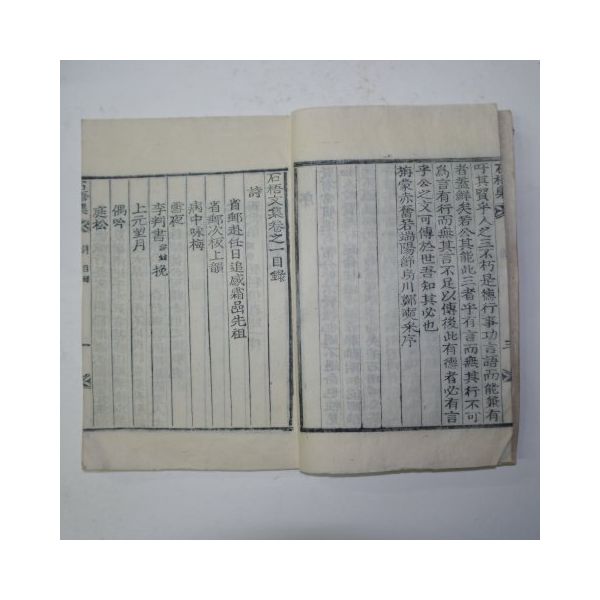 石梧集
吁其賢乎人之三不朽是德行事功言語而能兼有
者蓋鮮矣若公其能此三者乎有言而無其行不可
爲言有行而無其言不足以傳後此有德者必有言
乎公之文可傳於世吾知其必也
旃蒙赤奮若端陽節烏川鄭來序
三
石梧文集卷之一目錄
詩
省郵赴任日追感霜嵒先祖
省郵次板上韻
病中咏梅
雪夜
李判書 挽
上元望月
偶吟
庭松
石梧集
目
一